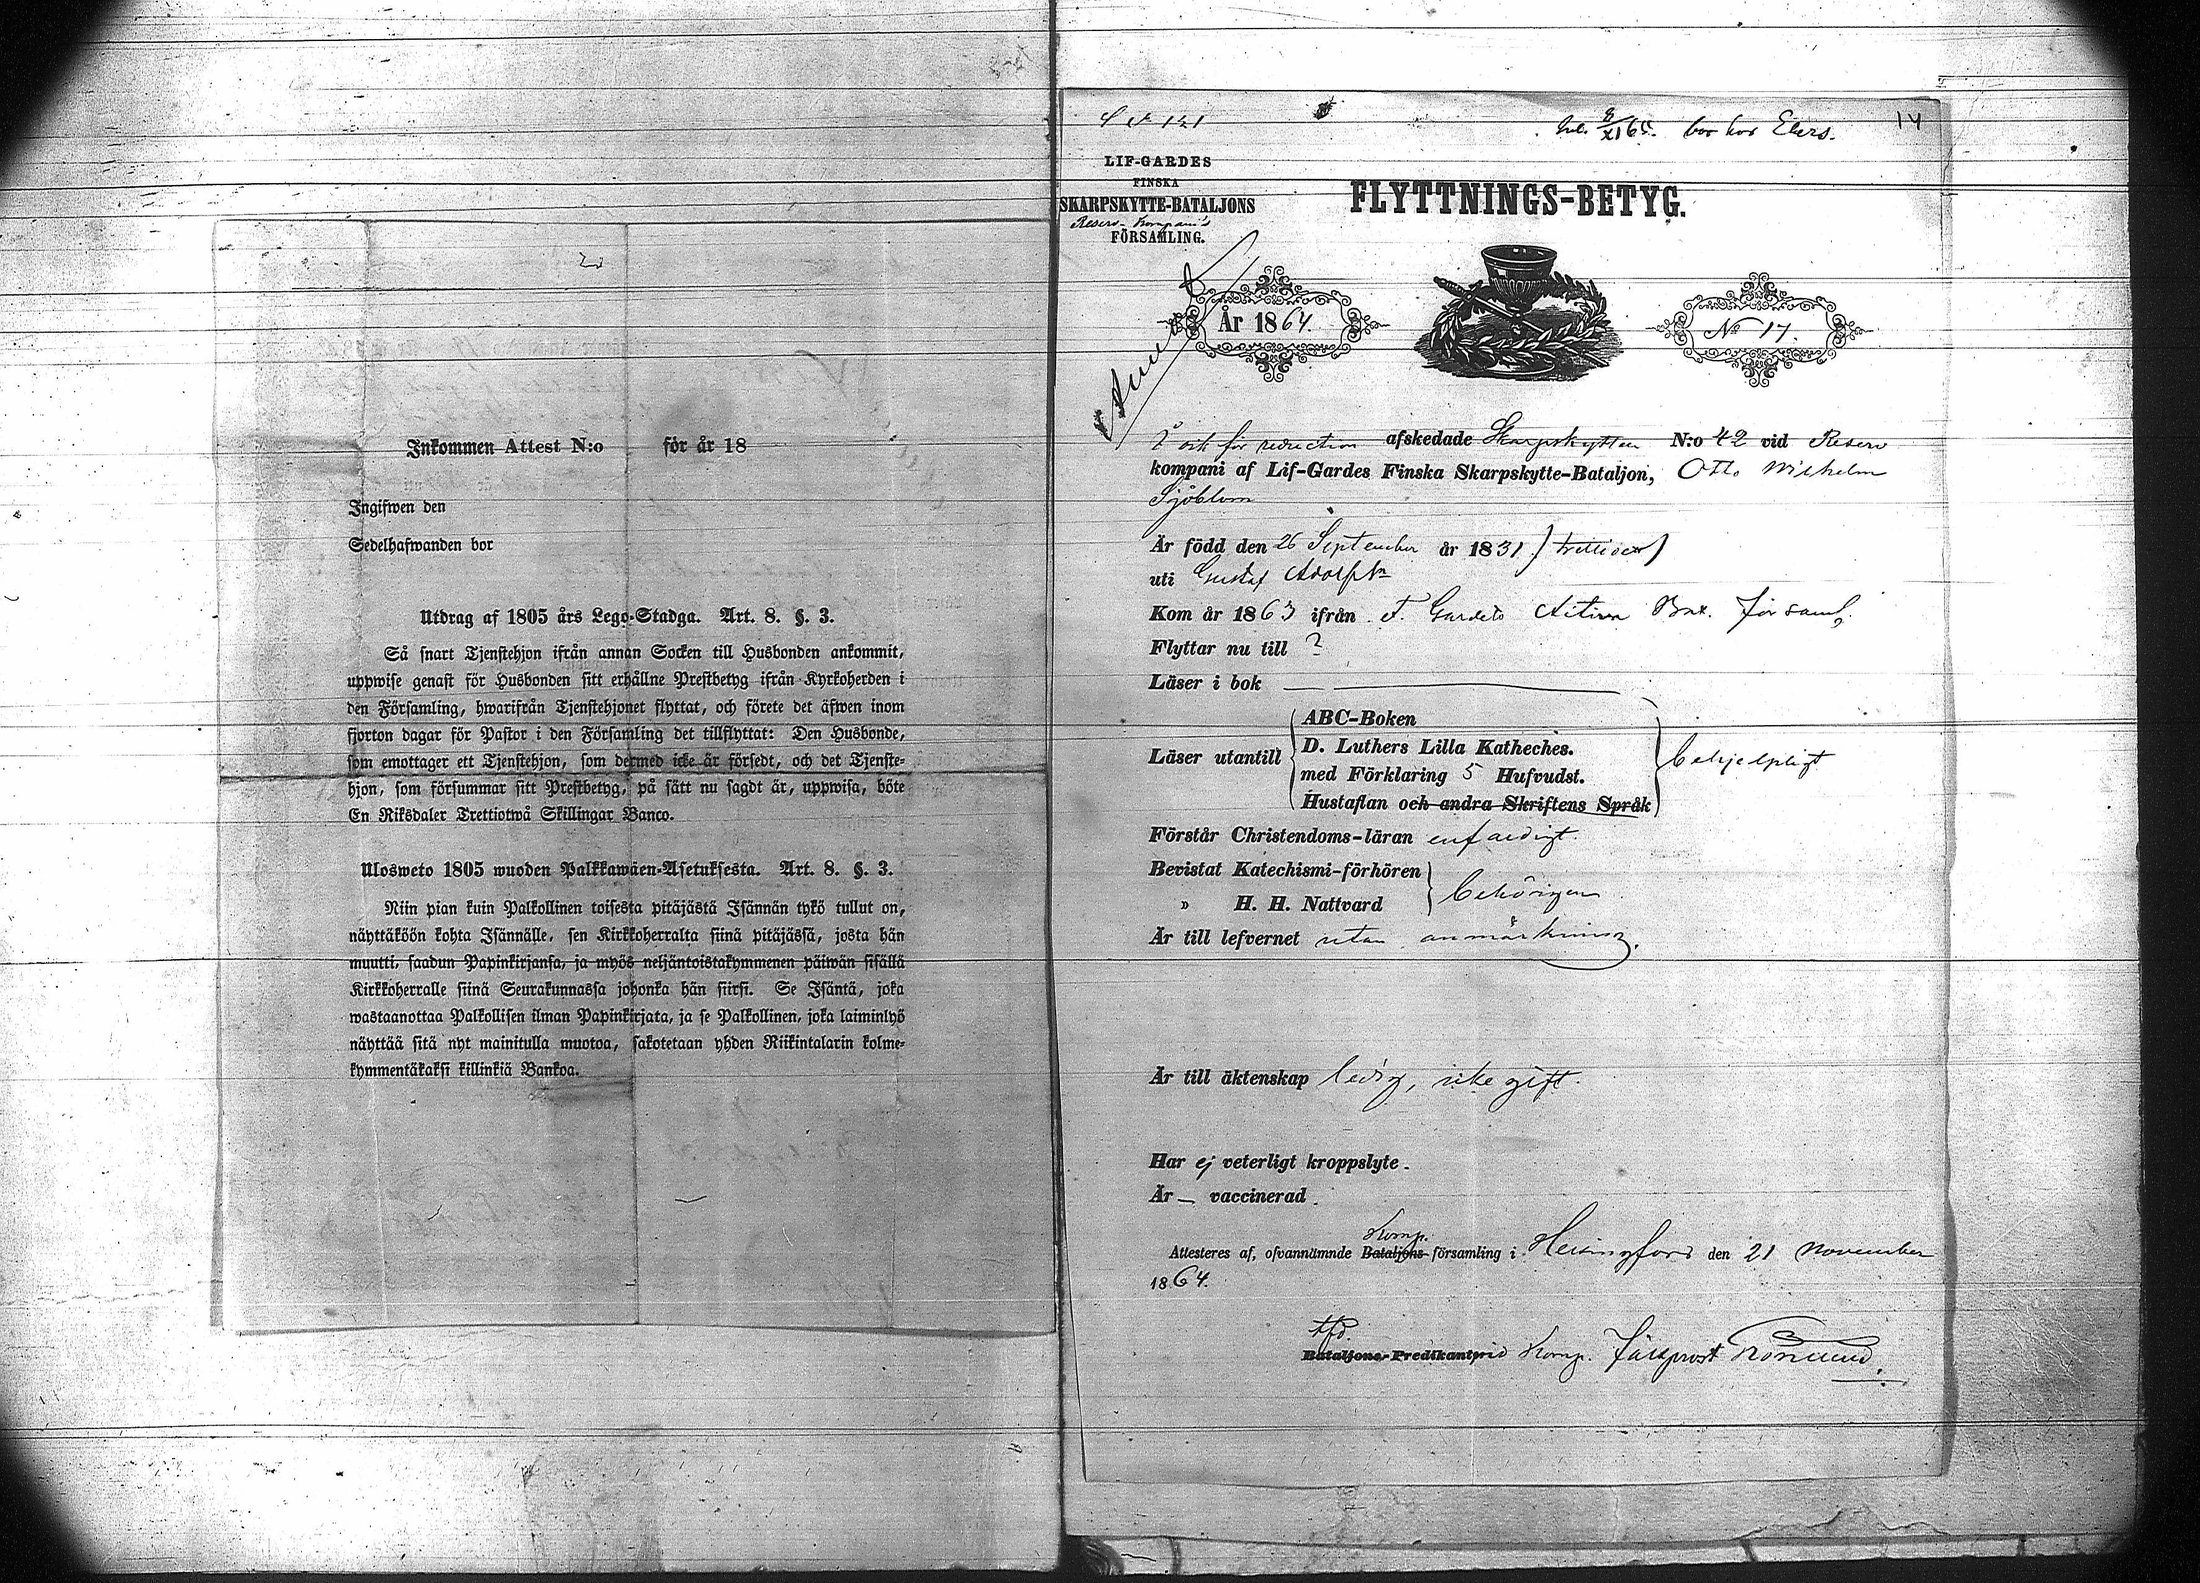 Inkommen Attest N:o för år 18
Ingifwen den
Sedelhafwanden bor
Utdrag af 1805 års Lego-Stadga. Art. 8. §. 3.
Så snart Tjenstehjon ifrån annan Socken till Husbonden ankommit,
uppwise genast för Husbonden sitt erhållne Prestbetyg ifrån Kyrkoherden i
den Församling, hwarifrån Tjenstehjonet flyttat, och förete det äfwen inom
fjorton dagar för Pastor i den Församling det tillflyttat: Den Husbonde,
som emottager ett Tjenstehjon, som dermed icke är försedt, och det Tjenste-
hjon, som försummar sitt Prestbetyg, på sätt nu sagdt är, uppwisa, böte
En Riksdaler Trettiotwå Skillingar Banco.
Ulosweto 1805 wuoden Palkkawäen-Asetuksesta. Art. 8. §. 3.
Niin pian kuin Palkollinen toisesta pitäjästä Isännän tykö tullut on,
näyttäköön kohta Isännälle, sen Kirkkoherralta siinä pitäjässä, josta hän
muutti, saadun Papinkirjansa, ja myös neljäntoistakymmenen päiwän sisällä
Kirkkoherralle siinä Seurakunnassa johonka hän siirsi. Se Isäntä, joka
wastaanottaa Palkollisen ilman Papinkirjata, ja se Palkollinen, joka laiminlyö
näyttää sitä nyt mainitulla muotoa, sakotetaan yhden Riikintalarin kolme-
kymmentäkaksi killinkiä Bankoa.
121
8/XI 65. bor hos Elers.
14
LIF-GARDES
FINSKA
SKARPSKYTTE-BATALJONS
Reserv-Kompani's
FÖRSAMLING.
FLYTTNINGS-BETYG.
År 1864.
No 17.
för reduction afskedade Skarpskytten N:o 42 vid Reserv
kompani af Lif-Gardes Finska Skarpskytte-Bataljon, Otto Wilhelm
Sjöblom
Är född den 26 September år 1831 / trettioen /
uti Gustaf Adolphs
Kom år 1863 ifrån F. Gardets Active Bat. församl.
Flyttar nu till ?
Läser i bok —
Läser utantill
ABC-Boken
D. Luthers Lilla Katheches.
med Förklaring 5 Hufvudst.
Hustaflan och andra Skriftens Språk
behjelpligt
Förstår Christendoms-läran enfaldigt.
Bevistat Katechismi-förhören
» H. H. Nattvard
behörigen
Är till lefvernet utan anmärkning.
Är till äktenskap ledig, icke gift.
Har ej veterligt kroppslyte.
Är — vaccinerad.
Komp.
Attesteres af, ofvannämnde Bataljons-församling i Helsingfors den 21 November
1864.
Bataljons-Predikant vid Komp. Fältprost